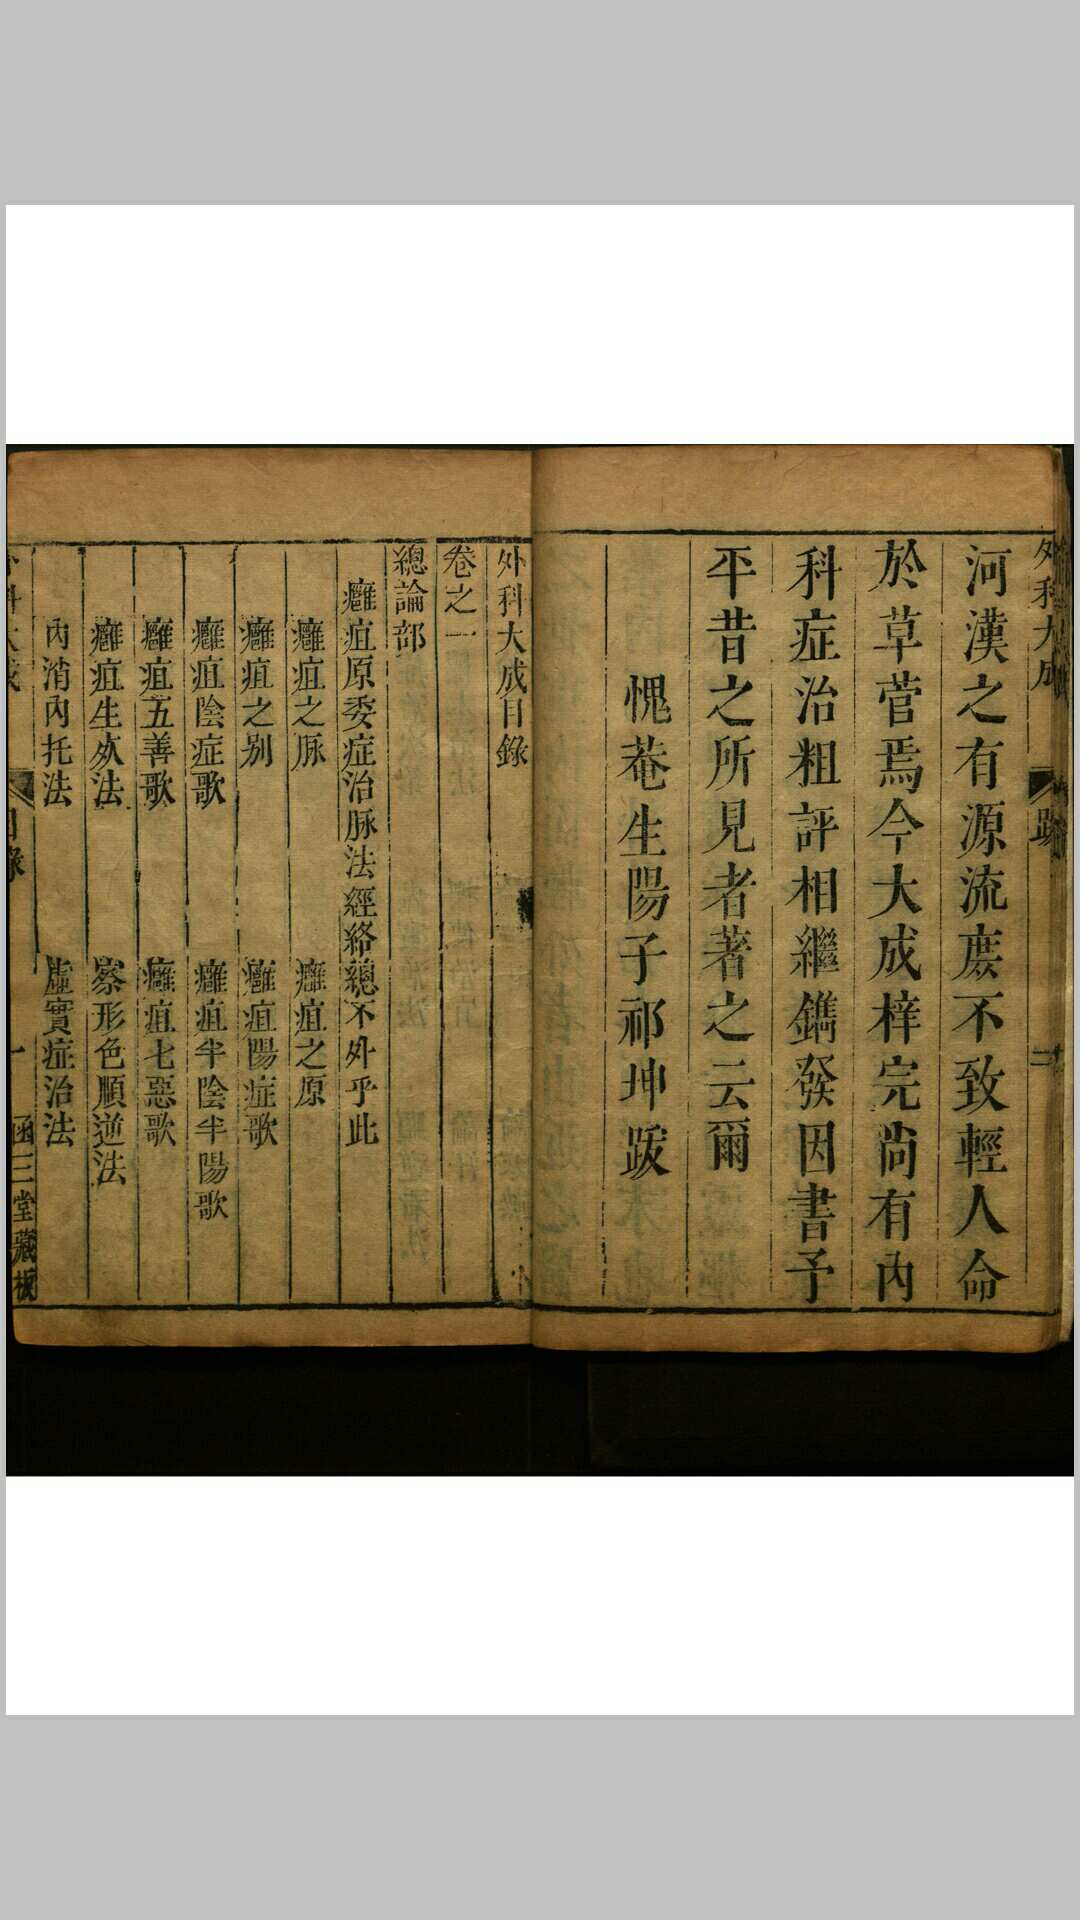 外科大成
跋
二
河漢之有源流庶不致輕人命
於草菅焉今大成梓完尚有內
科症治粗評相繼鐫發因書予
平昔之所見者著之云爾
愧菴生陽子祁坤跋
外科大成目錄
卷之一
總論部
癰疽原委症治脉法經絡總不外乎此
癰疽之脉
癰疽之原
癰疽之别
癰疽陽症歌
癰疽陰症歌
癰疽半陰半陽歌
癰疽五善歌
癰疽七惡歌
癰疽生𣦸法
察形色順逆法
內消內托法
虛實症治法
外科大成
目錄
一
函三堂藏板